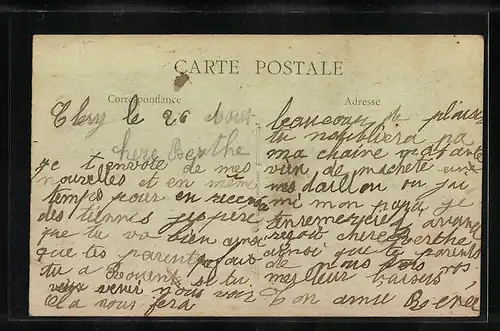 CARTE POSTALE
Correspondance
Adresse
le 26 Aout
chere Berthe
je t'envoie de mes
nouvelles et en même
temps pour en recevoir
des tiennes j'espère
que tu va bien ainsi
que tes parents
tu a si tu
veux venir nous voir
Ca nous fera
beaucoup de plaisir
tu noubliera pa
ma chaine
vien de macheté une
medaillon ou jai
mi mon papa je
ten remercie avance
reçoit chere Berthe
ainsi que te parents
de nous tous nos
meilleur baisers
Ton amie Renée